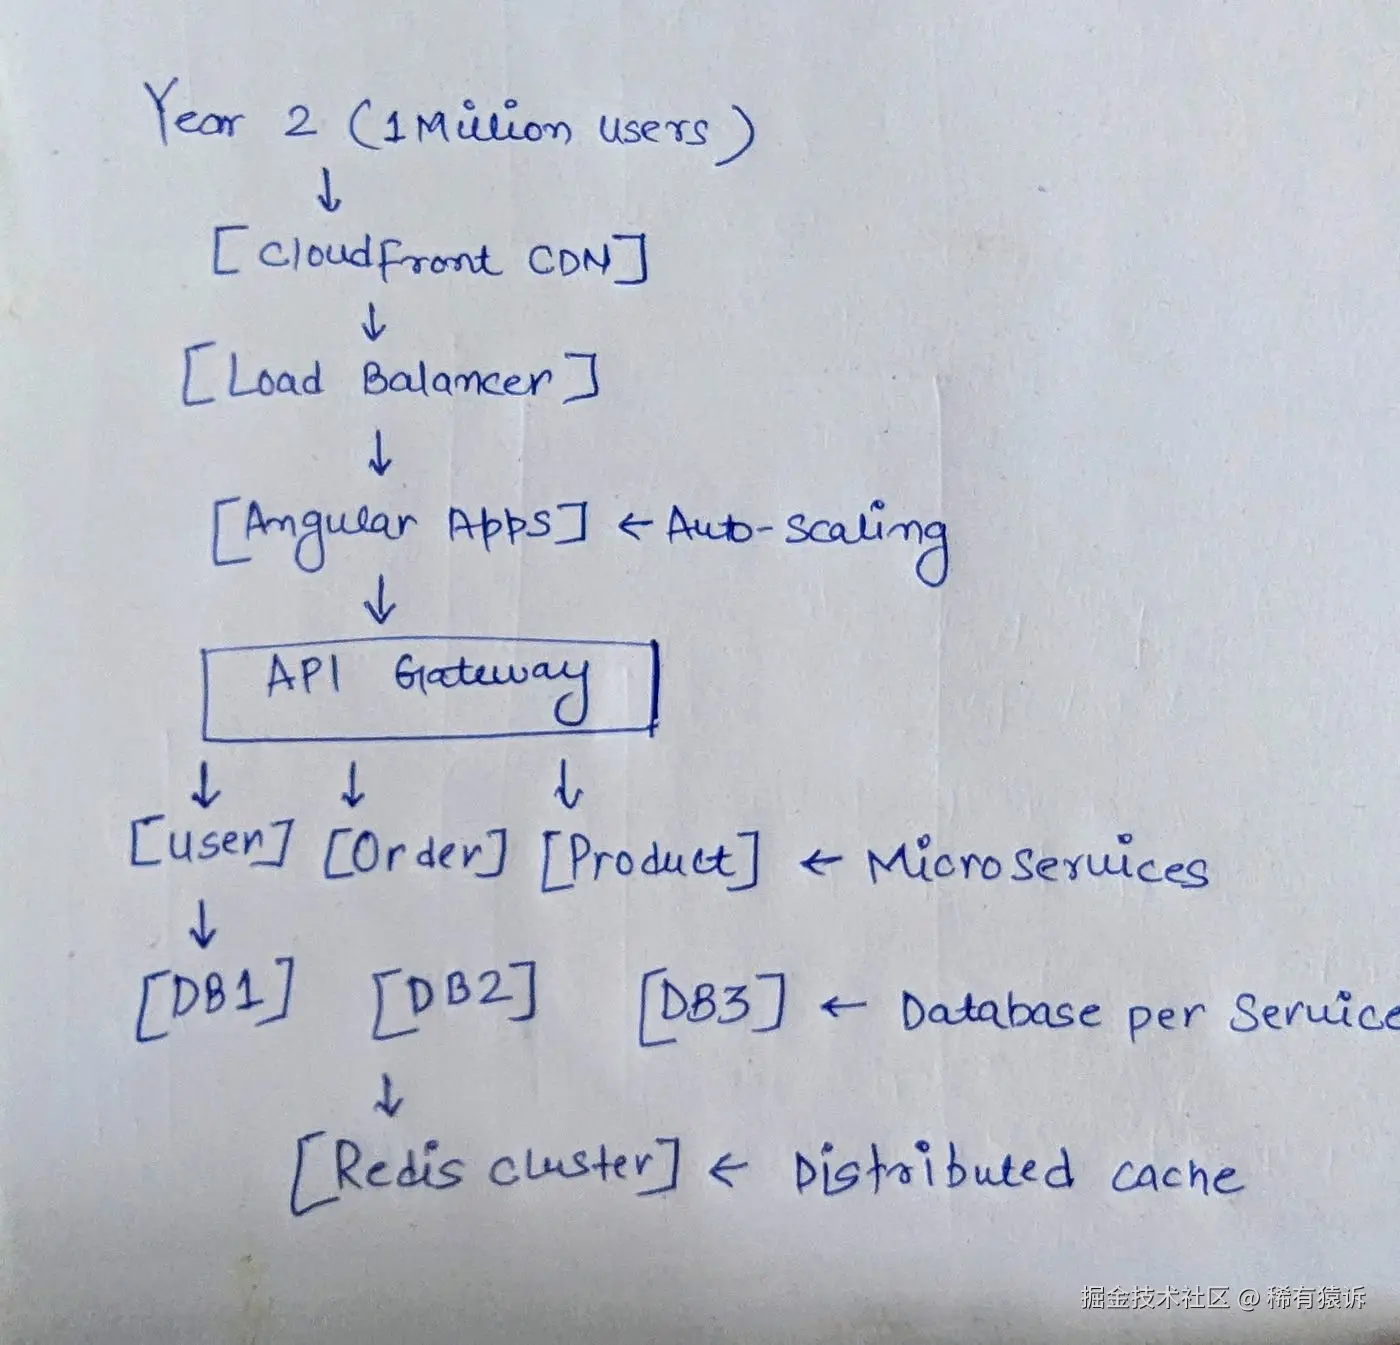 Year 2 (1 Million users)
↓
[CloudFront CDN]
↓
[Load Balancer]
↓
[Angular Apps] ← Auto-scaling
↓
API Gateway
↓ ↓ ↓
[user] [Order] [Product] ← Microservices
↓
[DB1] [DB2] [DB3] ← Database per Service
↓
[Redis cluster] ← Distributed cache
掘金技术社区 @ 稀有猿诉